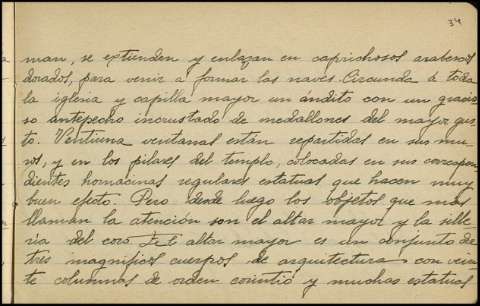 34
man, se extienden y enlazan en caprichosos arabescos
dorados, para venir a formar las naves. Circunda á toda
la iglesia y capilla mayor un ándito con un gracio
so antepecho incrustado de medallones del mayor gus
to. Ventiuna ventanas están repartidas en sus mu
ros, y en los pilares del templo, colocadas en sus correspon
dientes hornacinas regulares estatuas que hacen muy
buen efecto. Pero desde luego los objetos que mas
llaman la atención son el altar mayor y la sille
ria del coro. El altar mayor es un conjunto de
tres magnificos cuerpos de arquitectura con vein
te columnas de orden corintió y muchas estatuas